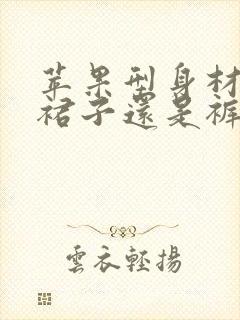 苹果型身材
裙子還是褲
雲衣輕揚